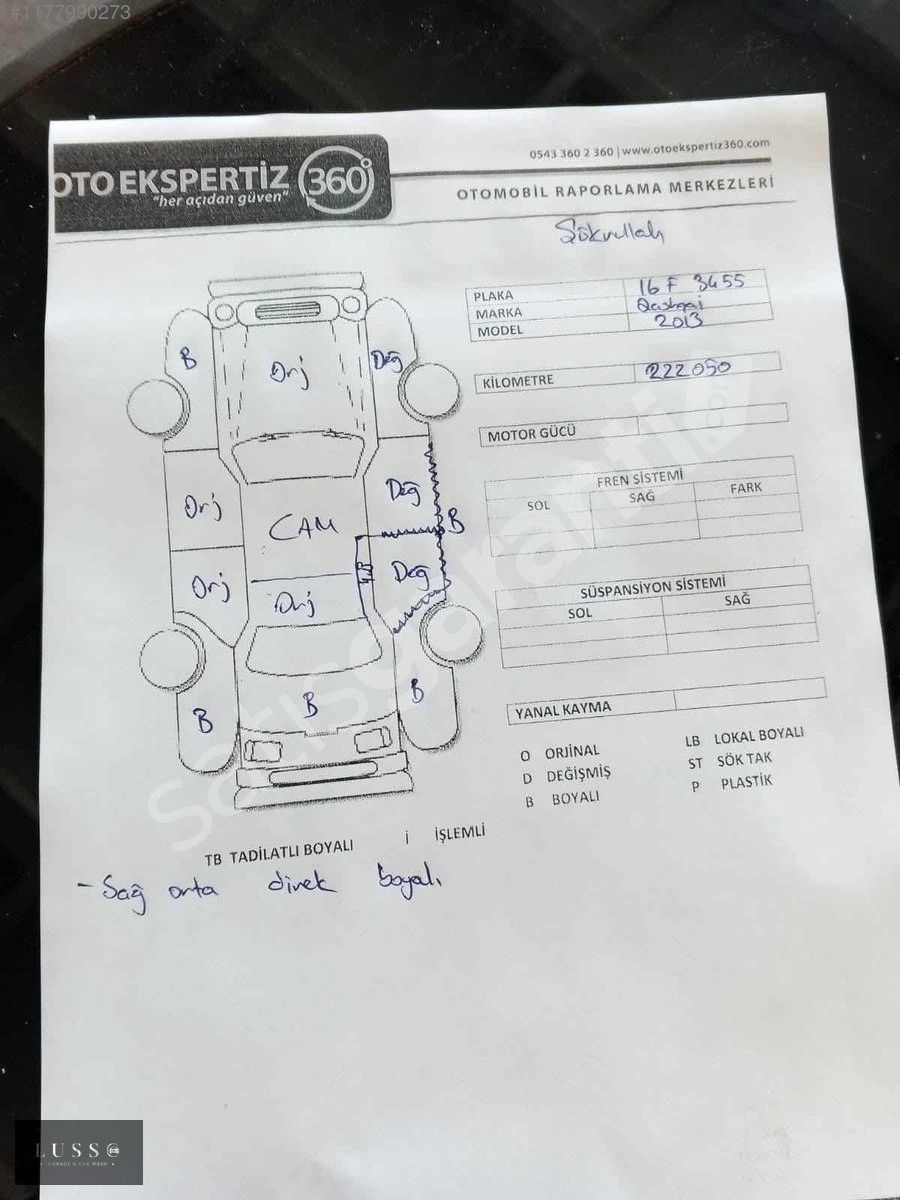 #1177990273
OTO EKSPERTİZ 360°
"her açıdan güven"
0543 360 2 360 | www.otoekspertiz360.com
OTOMOBİL RAPORLAMA MERKEZLERİ
Şükrullah
PLAKA 16 F 3455
MARKA Qashqai
MODEL 2013
KİLOMETRE 222050
MOTOR GÜCÜ
FREN SİSTEMİ
SOL SAĞ FARK
SÜSPANSİYON SİSTEMİ
SOL SAĞ
YANAL KAYMA
B Orj Değ
Orj CAM Değ
B
Orj Orj LB Değ
B B B
O ORJİNAL LB LOKAL BOYALI
D DEĞİŞMİŞ ST SÖK TAK
B BOYALI P PLASTİK
TB TADİLATLI BOYALI İ İŞLEMLİ
- Sağ orta direk boyalı
satisgaranti
LUSSO
GARAGE & CAR WASH